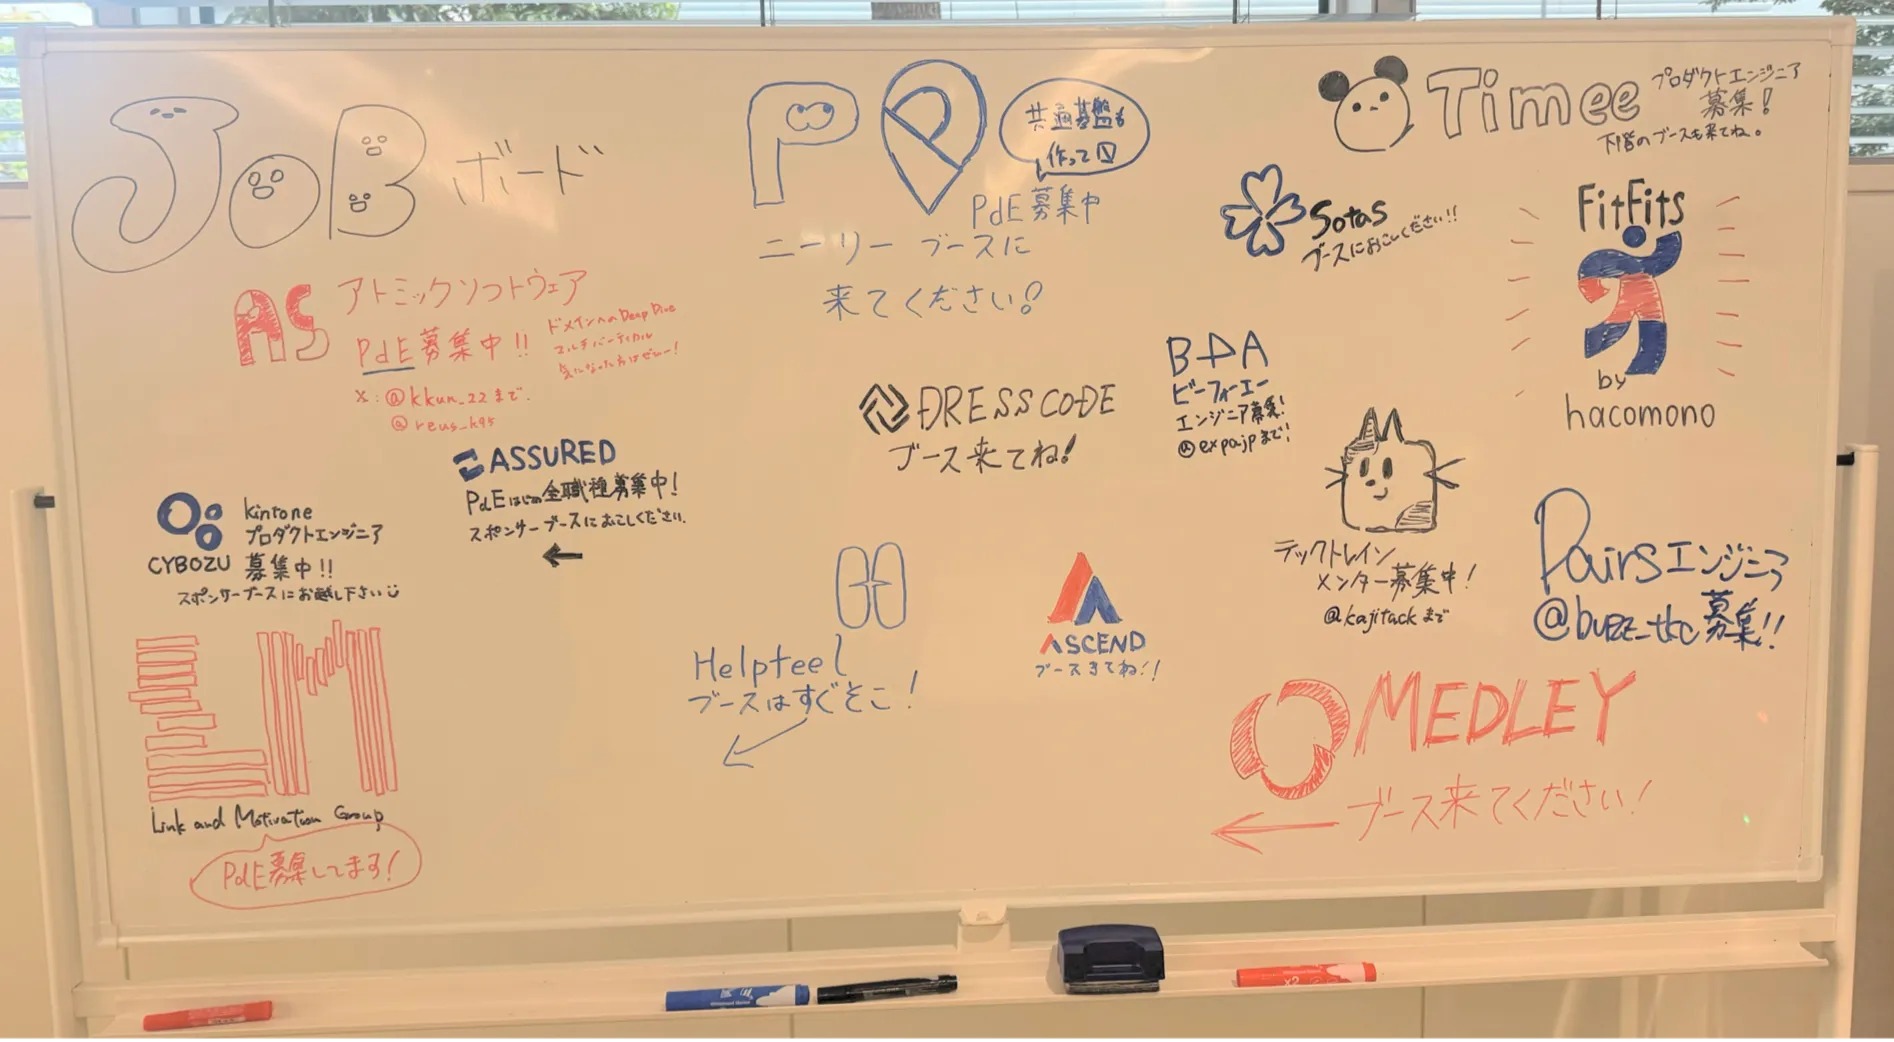 JOB ボード
共通基盤も
作って
PdE募集中
ニーリー ブースに
来てください!
Timee
プロダクトエンジニア
募集!
下階のブースも来てね。
Sotas
ブースにおこしください!!
FitFits
by
hacomono
AS アトミックソフトウェア
PdE募集中!!
ドメインへのDeep Dive
マルチバーティカル
気になった方はぜひー!
X:@kkun_22まで.
@reus_k95
ASSURED
PdEはじめ全職種募集中!
スポンサーブースにおこしください.
DRESS CODE
ブース来てね!
ビーフォーエー
エンジニア募集!
@expajpまで!
CYBOZU
kintone
プロダクトエンジニア
募集中!!
スポンサーブースにお越し下さい
Helpfeel
ブースはすぐそこ!
ASCEND
ブースきてね!!
テックトレイン
メンター募集中!
@kajitackまで
Pairsエンジニア
募集!!
MEDLEY
ブース来てください!
LM
Link and Motivation Group
PdE募集してます!